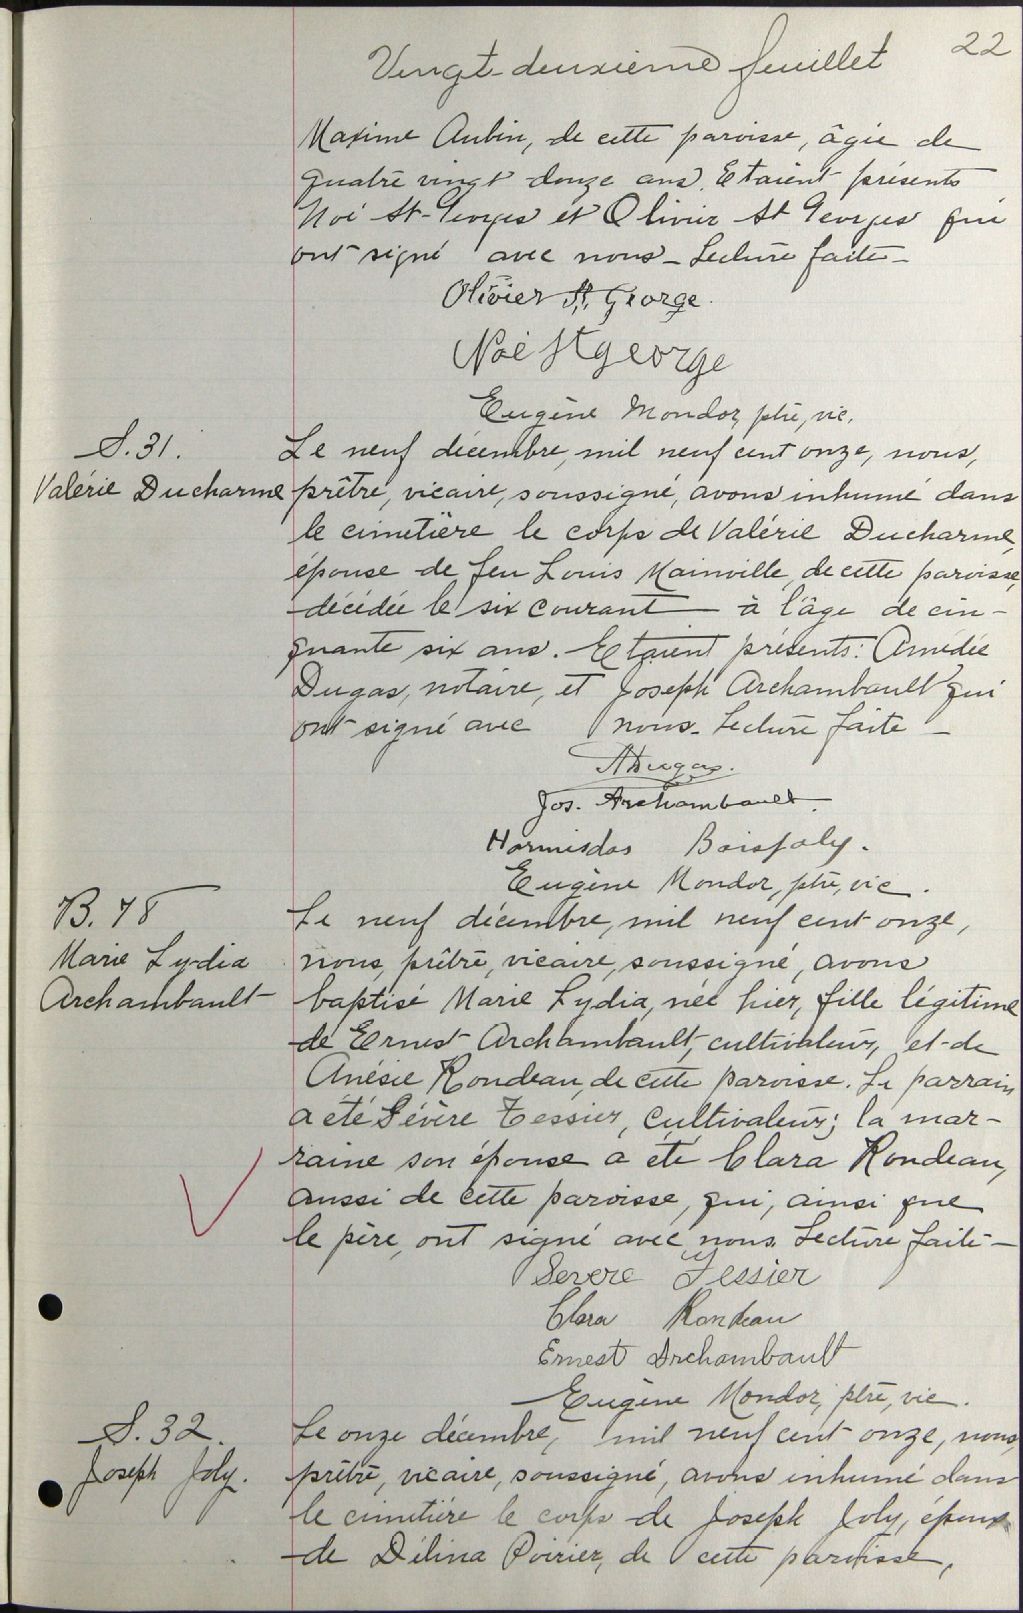 Vingt-deuxième feuillet 22
Maxime Aubin, de cette paroisse, âgée de
quatre vingt douze ans. Etaient présents
Noé St-Georges et Olivier St Georges qui
ont signé avec nous - Lecture faite -
Olivier St. George.
Noé St george
Eugène Mondor, ptre, vic.
S. 31.
Valérie Ducharme
Le neuf décembre, mil neuf cent onze, nous,
prêtre, vicaire, soussigné, avons inhumé dans
le cimetière le corps de Valérie Ducharme,
épouse de feu Louis Mainville, de cette paroisse,
décédée le six courant à l'âge de cin-
quante six ans. Etaient présents: Amédée
Dugas, notaire, et Joseph Archambault qui
ont signé avec nous. Lecture faite -
A Dugas.
Jos. Archambault.
Hormisdas Boisjoly.
Eugène Mondor, ptre, vic.
B. 78
Marie Lydia
Archambault
Le neuf décembre, mil neuf cent onze,
nous, prêtre, vicaire, soussigné, avons
baptisé Marie Lydia, née hier, fille légitime
de Ernest Archambault, cultivateur, et de
Anésie Rondeau, de cette paroisse. Le parrain
a été Sévère Tessier, cultivateur; la mar-
raine son épouse a été Clara Rondeau,
aussi de cette paroisse, qui, ainsi que
le père, ont signé avec nous. Lecture faite -
Severe Tessier
Clara Rondeau
Ernest Archambault
Eugène Mondor, ptre, vic.
S. 32.
Joseph Joly.
Le onze décembre, mil neuf cent onze, nous,
prêtre, vicaire, soussigné, avons inhumé dans
le cimetière le corps de Joseph Joly, époux
de Délina Poirier, de cette paroisse,